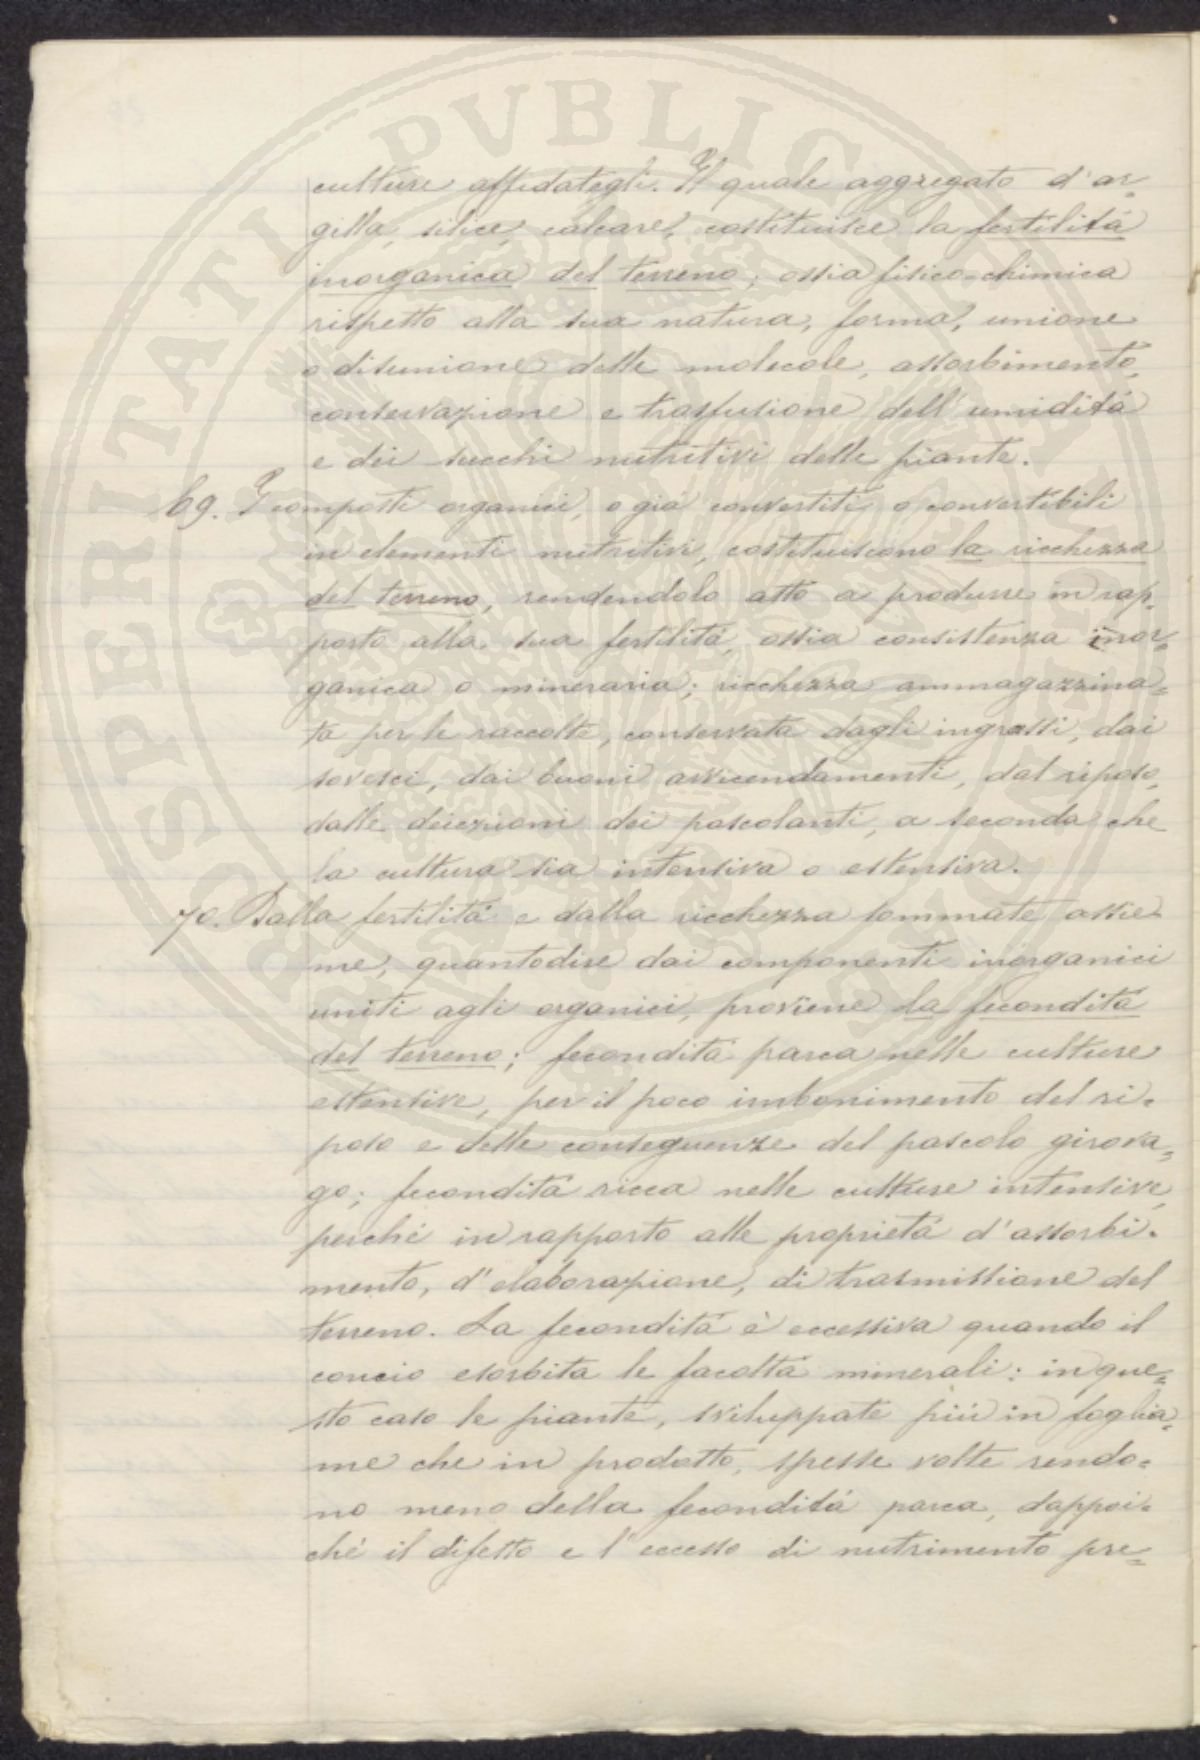 PROSPERITATI PVBLICAE AVGENDAE
culture affidategli. Il quale aggregato d'ar-
gilla, silice, calcare, costituisce la fertilitá
inorganica del terreno, ossia fisico-chimica
rispetto alla sua natura, forma, unione
o disunione delle molecole, assorbimento,
conservazione e trasfusione dell'umiditá
e dei succhi nutritivi delle piante.
69. I composti organici, o giá convertiti o convertibili
in elementi nutritivi, costituiscono la ricchezza
del terreno, rendendolo atto a produrre in rap-
porto alla sua fertilitá, ossia consistenza inor-
ganica o mineraria; ricchezza ammagazzina=
ta per le raccolte, conservata dagli ingrassi, dai
sovesci, dai buoni avvicendamenti, dal riposo,
dalle deiezioni dei pascolanti, a seconda che
la cultura sia intensiva o estensiva.
70. Dalla fertilitá e dalla ricchezza sommate assie-
me, quantodire dai componenti inorganici
uniti agli organici, proviene la feconditá
del terreno; feconditá parca nelle culture
estensive, per il poco imbonimento del ri-
poso e delle conseguenze del pascolo girova=
go; feconditá ricca nelle culture intensive,
perché in rapporto alle proprietá d'assorbi-
mento, d'elaborazione, di trasmissione del
terreno. La feconditá è eccessiva quando il
concio esorbita le facoltá minerali: in que=
sto caso le piante, sviluppate piú in foglia=
me che in prodotto, spesse volte rendo=
no meno della feconditá parca, dappoi-
ché il difetto e l'eccesso di nutrimento pre=